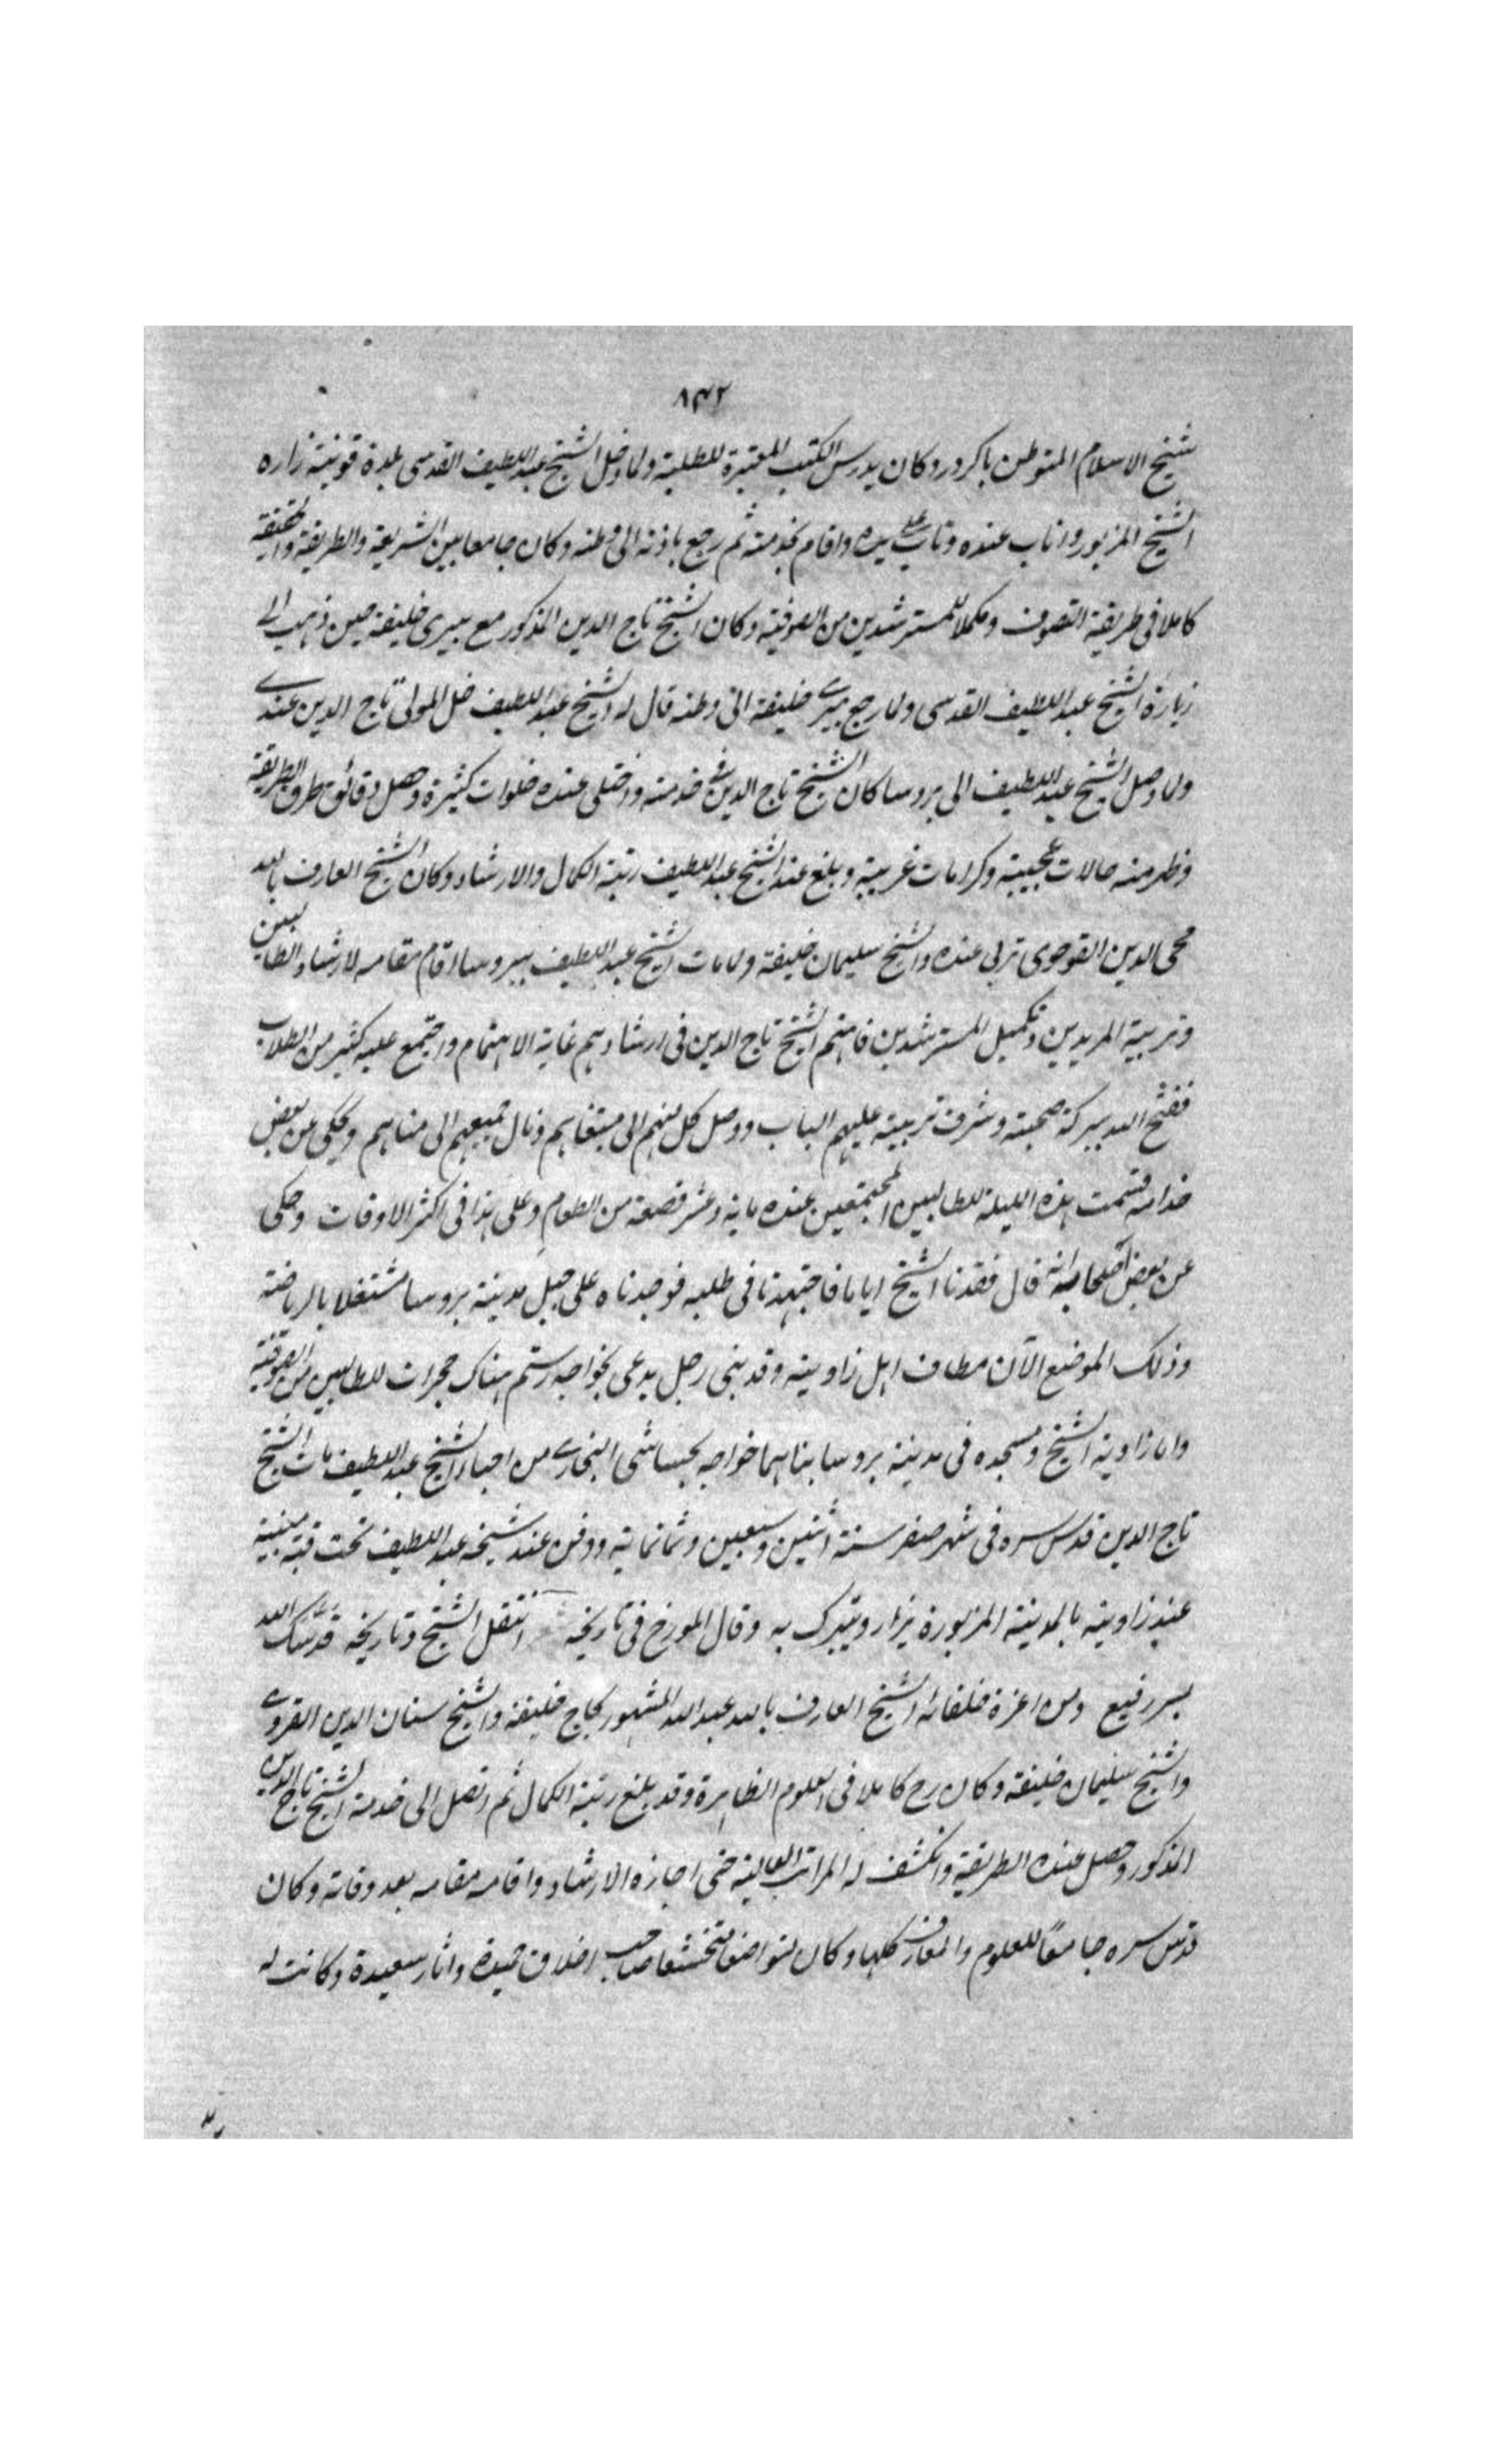 ٨٣٢
شيخ الاسلام المتوطن باكردر وكان يدرس الكتب المعتبرة للطلبة ولما دخل الشيخ عبد اللطيف القدسى بلدة قونية زاره
الشيخ المزبور واناب عنده وتاب على يده واقام بخدمته ثم رجع باذنه الى وطنه وكان جامعا بين الشريعة والطريقة والحقيقة
كاملا فى طريقة التصوف ومكملا للمسترشدين من الصوفية وكان الشيخ تاج الدين المذكور مع پيرى خليفة حين ذهب الى
زيارة الشيخ عبد اللطيف القدسى ولما رجع پيرى خليفة الى وطنه قال له الشيخ عبد اللطيف خل المولى تاج الدين عندى
ولما وصل الشيخ عبد اللطيف الى بروسا كان الشيخ تاج الدين فى خدمته واختلى عنده خلوات كثيرة وحصل دقائق طرق الطريقة
وظهر منه حالات عجيبة وكرامات غريبة وبلغ عند الشيخ عبد اللطيف رتبة الكمال والارشاد وكان الشيخ العارف بالله
محى الدين القوجوى تربى عنده والشيخ سليمان خليفة ولما مات الشيخ عبد اللطيف ببروسا اقام مقامه لارشاد الطالبين
وتربية المريدين وتكميل المسترشدين فاهتم الشيخ تاج الدين فى ارشادهم غاية الاهتمام واجتمع عليه كثير من الطلاب
ففتح الله ببركة صحبته وشرف تربيته عليهم الباب ووصل كل منهم الى مبتغاهم ونال جميعهم الى مناهم ويحكى عن بعض
خدامه قسمت هذه الليلة للطالبين المجتمعين عنده مائة وعشر قصعة من الطعام وعلى هذا فى اكثر الاوقات وحكى
عن بعض اصحابه انه قال فقدنا الشيخ اياما فاجتهدنا فى طلبه فوجدناه على جبل مدينة بروسا مشتغلا بالرياضة
وذلك الموضع الآن مطاف اهل زاويته وقد بنى رجل يدعى بخواجه رستم هناك حجرات للطالبين من الصوفية
واما زاوية الشيخ ومسجده فى مدينة بروسا بناهما خواجه بخشاشى التجارى من احباء الشيخ عبد اللطيف مات الشيخ
تاج الدين قدس سره فى شهر صفر سنة اثنين وسبعين وثمانمائة ودفن عند شيخه عبد اللطيف تحت قبة مبنية
عند زاويته بالمدينة المزبورة يزار ويتبرك به وقال المورخ فى تاريخه انتقل الشيخ وتاريخه قدسك الله
بسر رفيع ومن اعزة خلفائه الشيخ العارف بالله عبد الله المشهور بحاج خليفة والشيخ سنان الدين القروى
والشيخ سليمان خليفة وكان رح كاملا فى العلوم الظاهرة وقد بلغ رتبة الكمال ثم اتصل الى خدمة الشيخ تاج الدين
المذكور وحصل عنده الطريقة وانكشف له المراتب العالية حتى اجازه الارشاد واقامه مقامه بعد وفاته وكان
قدس سره جامعًا للعلوم والمعارف كلها وكان متواضعا متخشعا صاحب اخلاق حميدة واثار سعيدة وكانت له